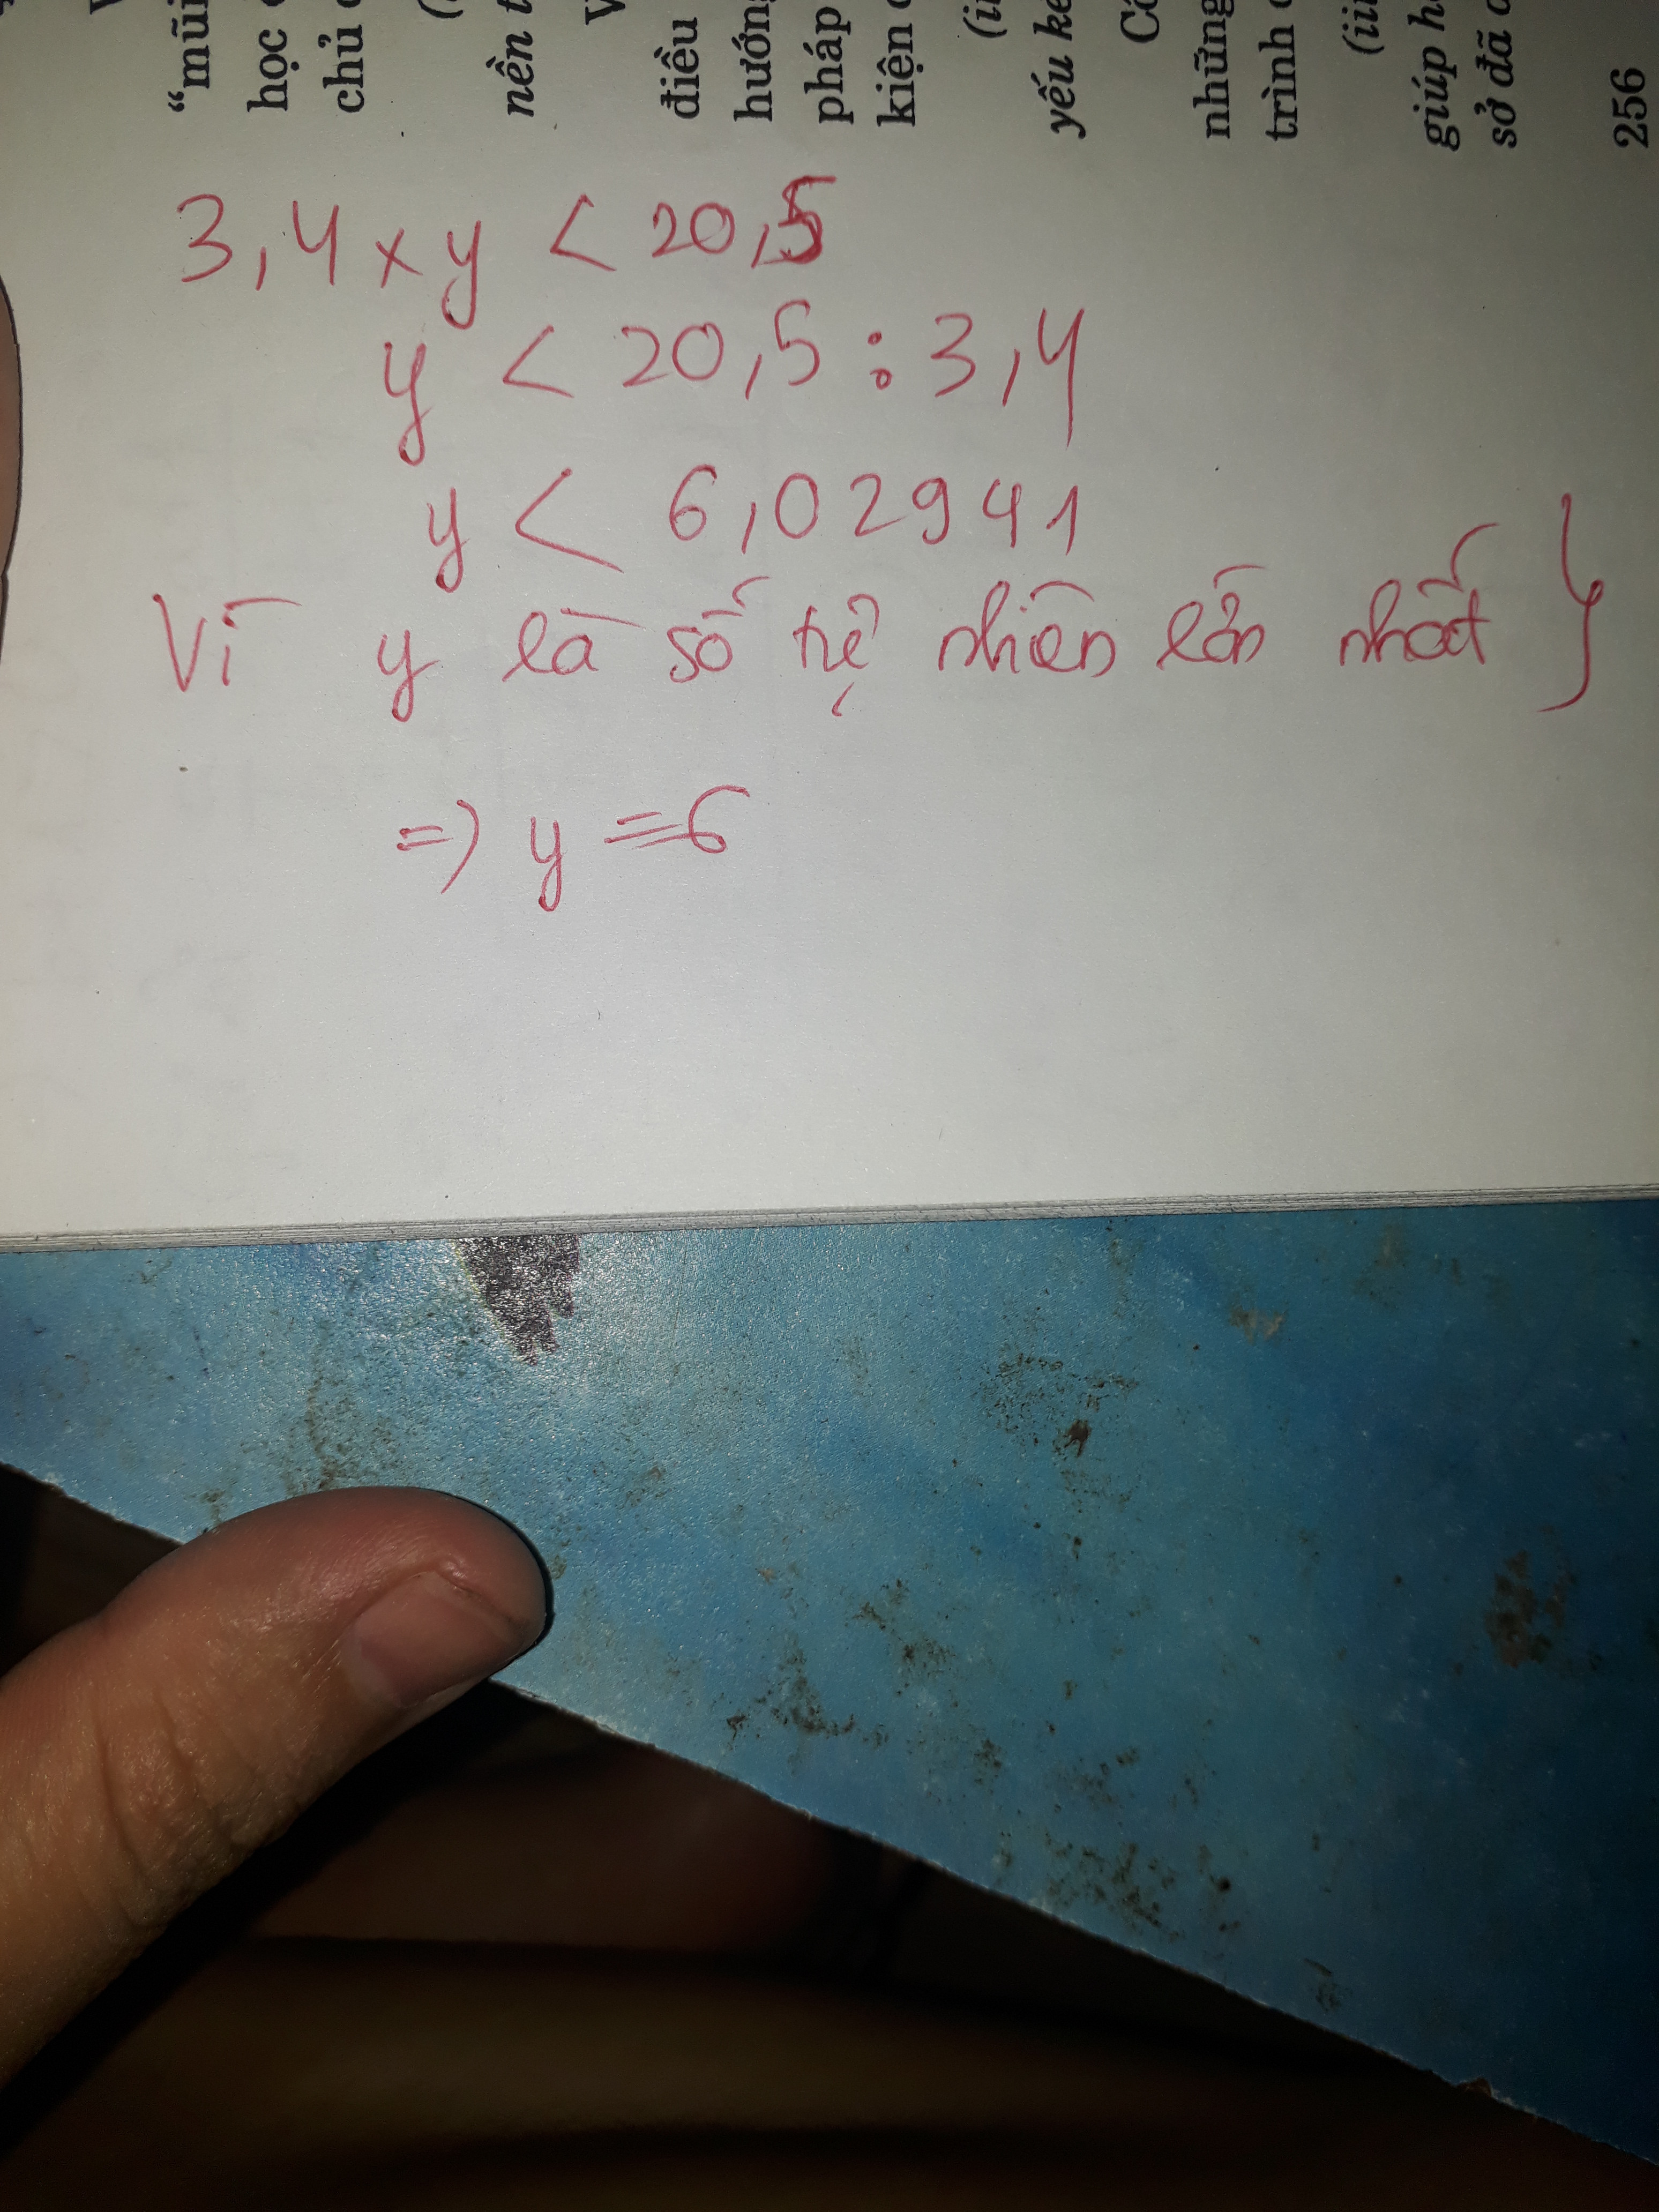 3,4 x y < 20,5
y < 20,5 : 3,4
y < 6,02941
Vì y là số tự nhiên lớn nhất }
=> y = 6
“mũi
học
chủ
nền
điều
hướng
pháp
kiện
yếu
những
trình
giúp
sở đã
256